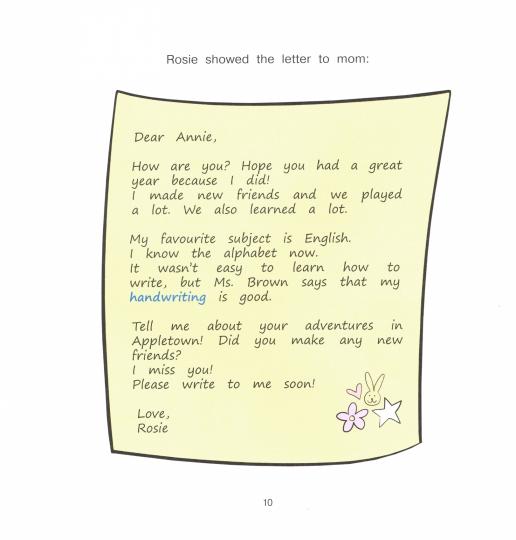 Rosie showed the letter to mom:
Dear Annie,
How are you? Hope you had a great
year because I did!
I made new friends and we played
a lot. We also learned a lot.
My favourite subject is English.
I know the alphabet now.
It wasn't easy to learn how to
write, but Ms. Brown says that my
handwriting is good.
Tell me about your adventures in
Appletown! Did you make any new
friends?
I miss you!
Please write to me soon!
Love,
Rosie
10